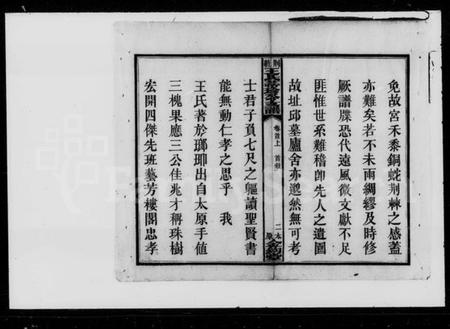 免故宮禾黍銅蛇荊棘之感蓋
亦難矣若不未雨綢繆及時修
厥譜牒恐代遠風微文獻不足
匪惟世系難稽即先人之遺圖
故址邱墓廬舍亦邈然無可考
卷首上 首冊
士君子負七尺之軀讀聖賢書
能無動仁孝之思乎 我
王氏著於瑯琊出自太原手値
三槐果應三公佳兆才稱珠樹
宏開四傑先班藝芳樓閣忠孝